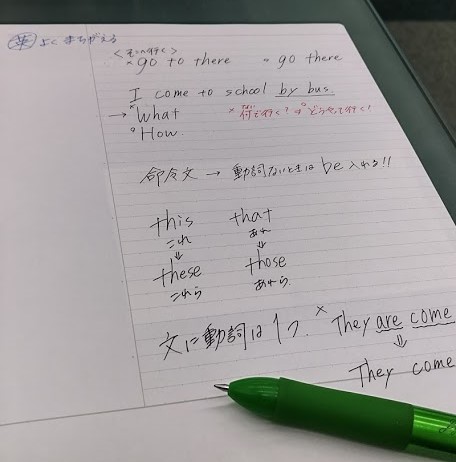 英 よくまちがえる
<そこへ行く>
× go to there ○ go there
I come to school by bus.
→ × What × 何で行く? ⇒ ○ どうやって行く?
○ How
命令文 → 動詞ないときは be 入れる!!
this that
これ あれ
⇓ ⇓
these those
これら あれら
文に動詞は1つ. × They are come
⇓
They come